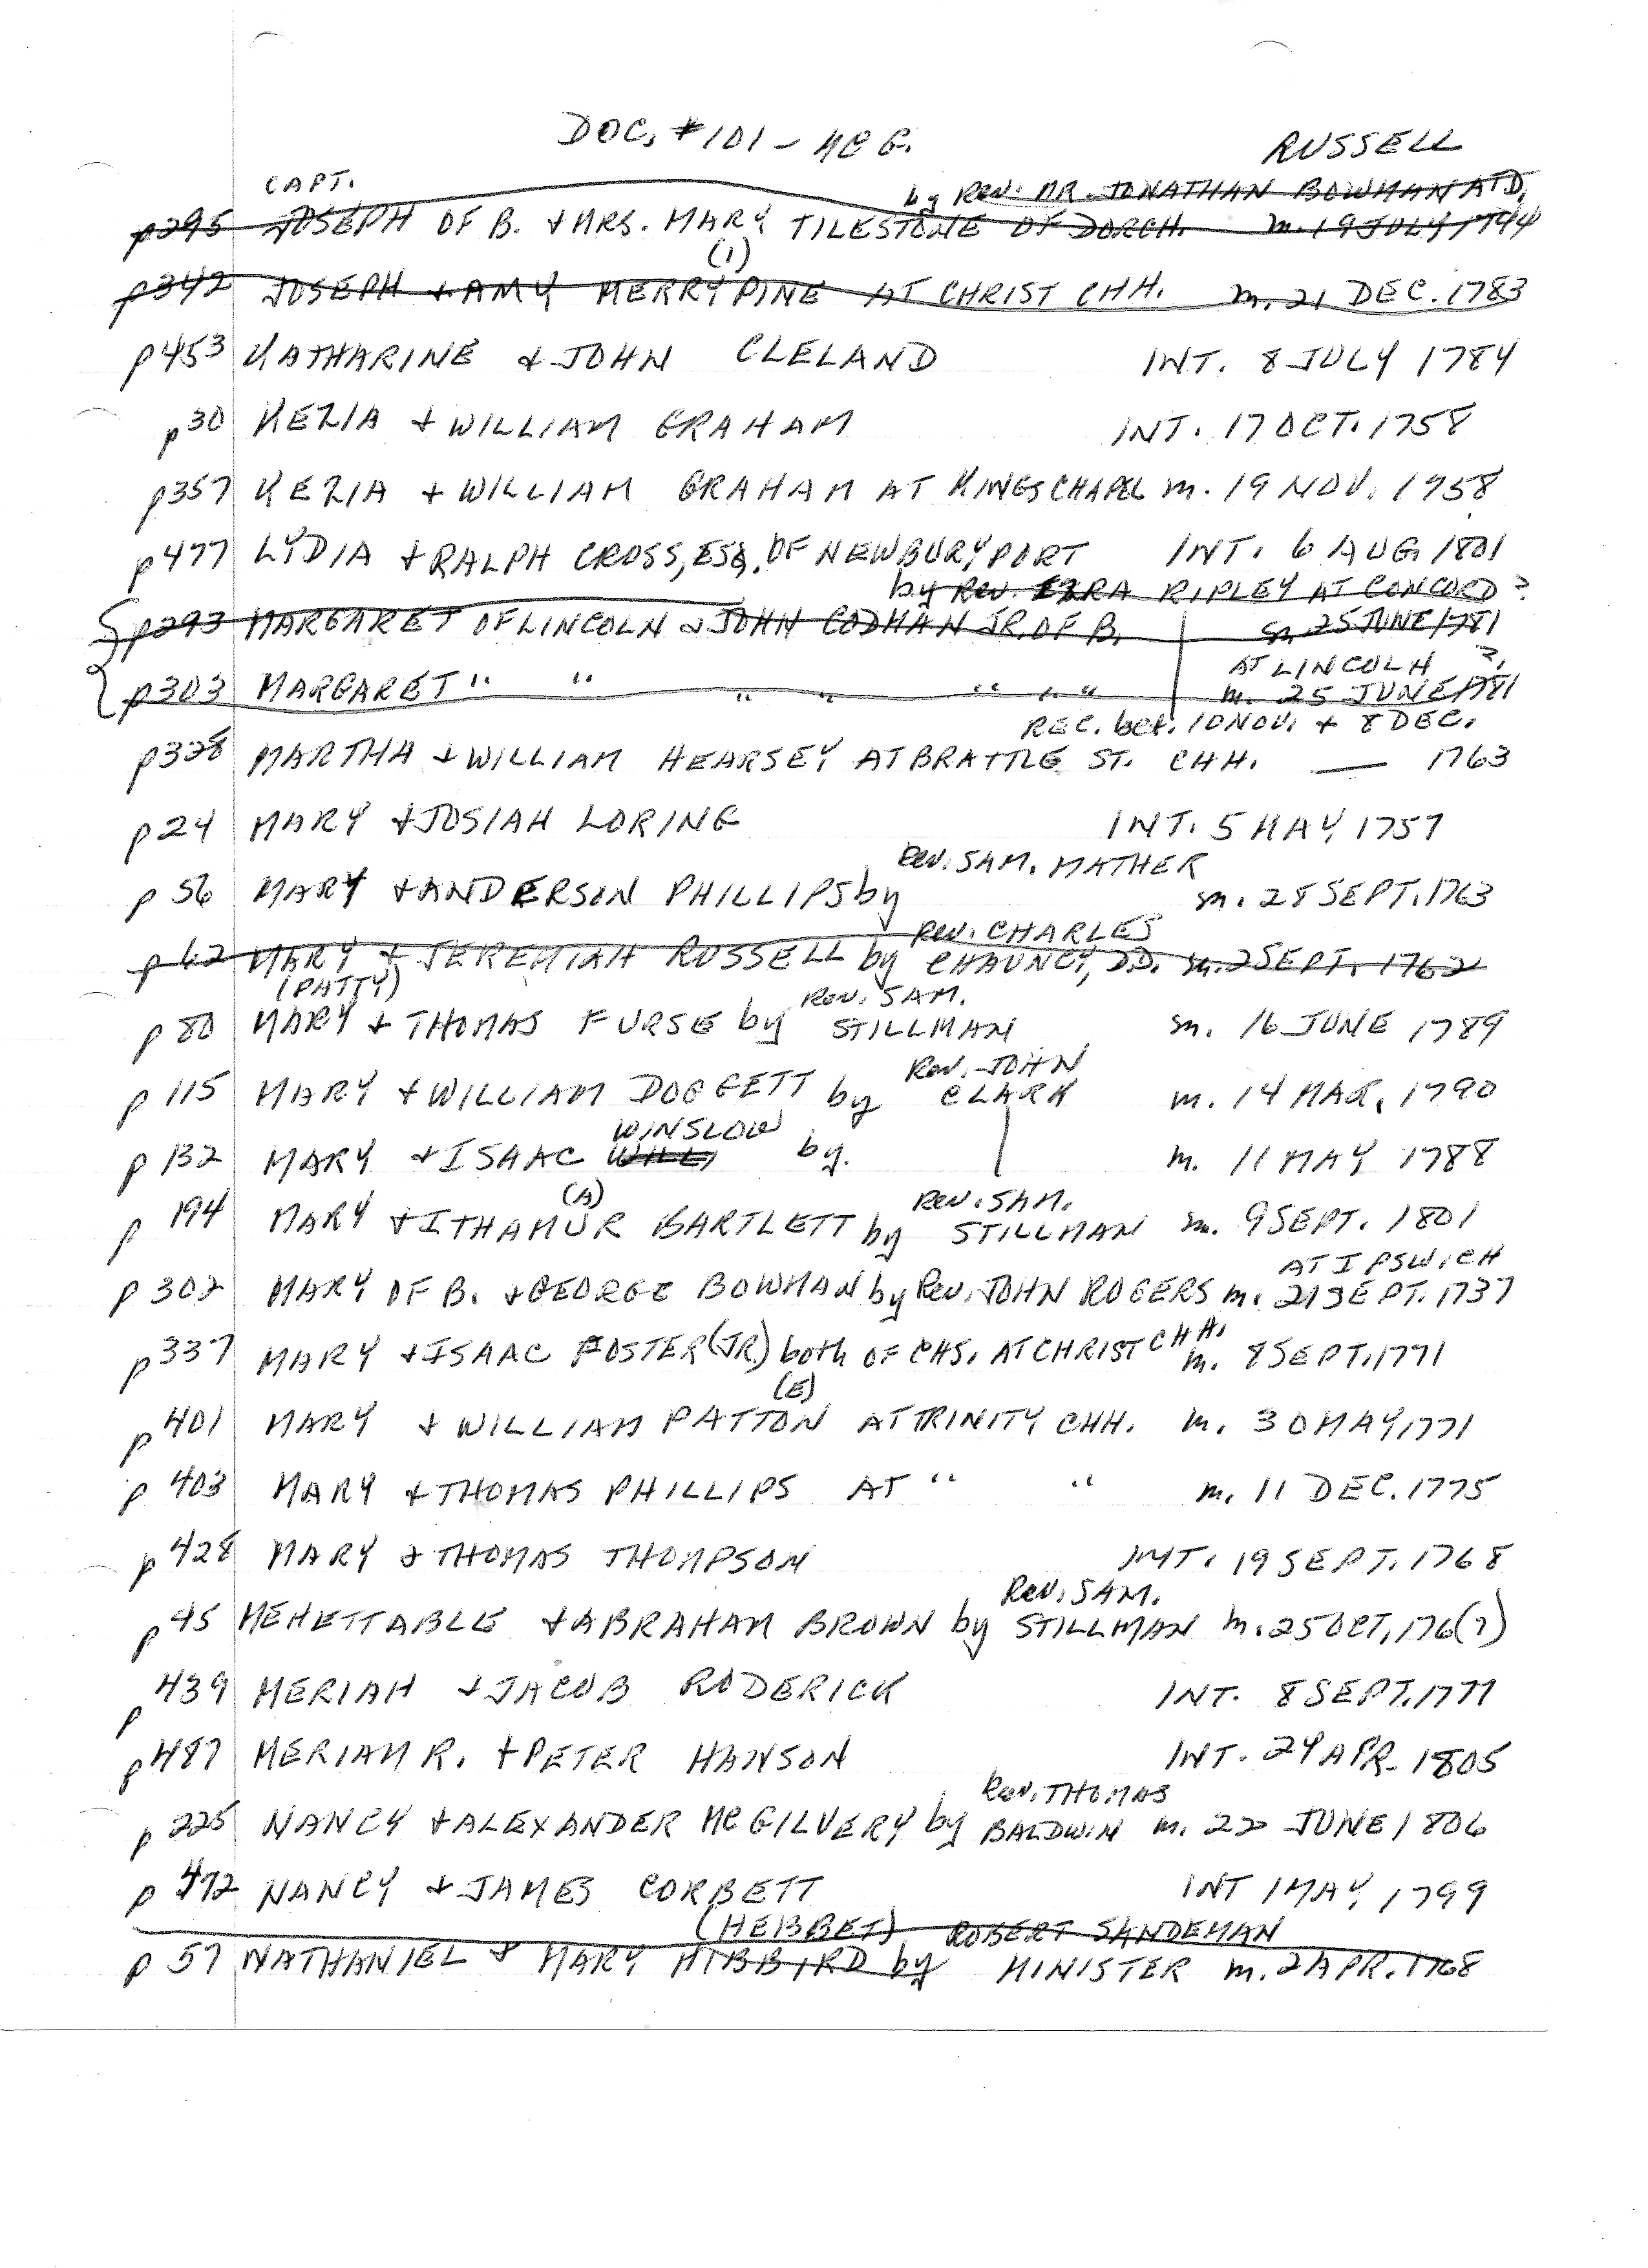 DOC. #101 - MCG. RUSSELL
CAPT. by Rev. MR. JONATHAN BOWMAN AT D.
p295 JOSEPH OF B. + MRS. MARY TILESTONE OF DORCH. m. 19 JULY 1744
(1)
p342 JOSEPH + AMY MERRYPINE AT CHRIST CHH. m. 21 DEC. 1783
p453 KATHARINE + JOHN CLELAND INT. 8 JULY 1784
p30 KEZIA + WILLIAM GRAHAM INT. 17 OCT. 1758
p357 KEZIA + WILLIAM GRAHAM AT KINGS CHAPEL m. 19 NOV. 1758
p477 LYDIA + RALPH CROSS, ESQ. OF NEWBURYPORT INT. 6 AUG 1801
by Rev. EZRA RIPLEY AT CONCORD ?
p293 MARGARET OF LINCOLN & JOHN CODMAN JR. OF B. m. 25 JUNE 1781
AT LINCOLN ?
p303 MARGARET " " " " " " " m. 25 JUNE 1781
REC. bet. 10 NOV. + 8 DEC.
p328 MARTHA + WILLIAM HEARSEY AT BRATTLE ST. CHH. — 1763
p24 MARY + JOSIAH LORING INT. 5 MAY 1757
Rev. SAM. MATHER
p 56 MARY + ANDERSON PHILLIPS by m. 28 SEPT. 1763
Rev. CHARLES
p 62 MARY + JEREMIAH RUSSELL by CHAUNCY, D.D. m. 2 SEPT. 1762
(PATTY) Rev. SAM.
p 80 MARY + THOMAS FURSE by STILLMAN m. 16 JUNE 1789
Rev. JOHN
p 115 MARY + WILLIAM DOGGETT by CLARK m. 14 MAR. 1790
WINSLOW
p 132 MARY + ISAAC WILL, by. m. 11 MAY 1788
(A) Rev. SAM.
p 194 MARY + ITHAMUR BARTLETT by STILLMAN m. 9 SEPT. 1801
AT IPSWICH
p 302 MARY OF B. + GEORGE BOWMAN by Rev. JOHN ROGERS m. 21 SEPT. 1737
p337 MARY + ISAAC FOSTER (JR.) both OF CHS. AT CHRIST CHH. m. 8 SEPT. 1771
(E)
p401 MARY + WILLIAM PATTON AT TRINITY CHH. m. 30 MAY 1771
p 403 MARY + THOMAS PHILLIPS AT " " m. 11 DEC. 1775
p428 MARY & THOMAS THOMPSON INT. 19 SEPT. 1768
Rev. SAM.
p45 MEHETTABLE + ABRAHAM BROWN by STILLMAN m. 25 OCT, 176(?)
p439 MERIAH + JACOB RODERICK INT. 8 SEPT. 1777
p487 MERIAM R. + PETER HANSON INT. 24 APR. 1805
Rev. THOMAS
p225 NANCY + ALEXANDER MCGILVERY by BALDWIN m. 22 JUNE 1806
p 472 NANCY + JAMES CORBETT INT 1 MAY 1799
(HEBBET) ROBERT SANDEMAN
p 57 NATHANIEL + MARY HIBBIRD by MINISTER m. 2 APR. 1768